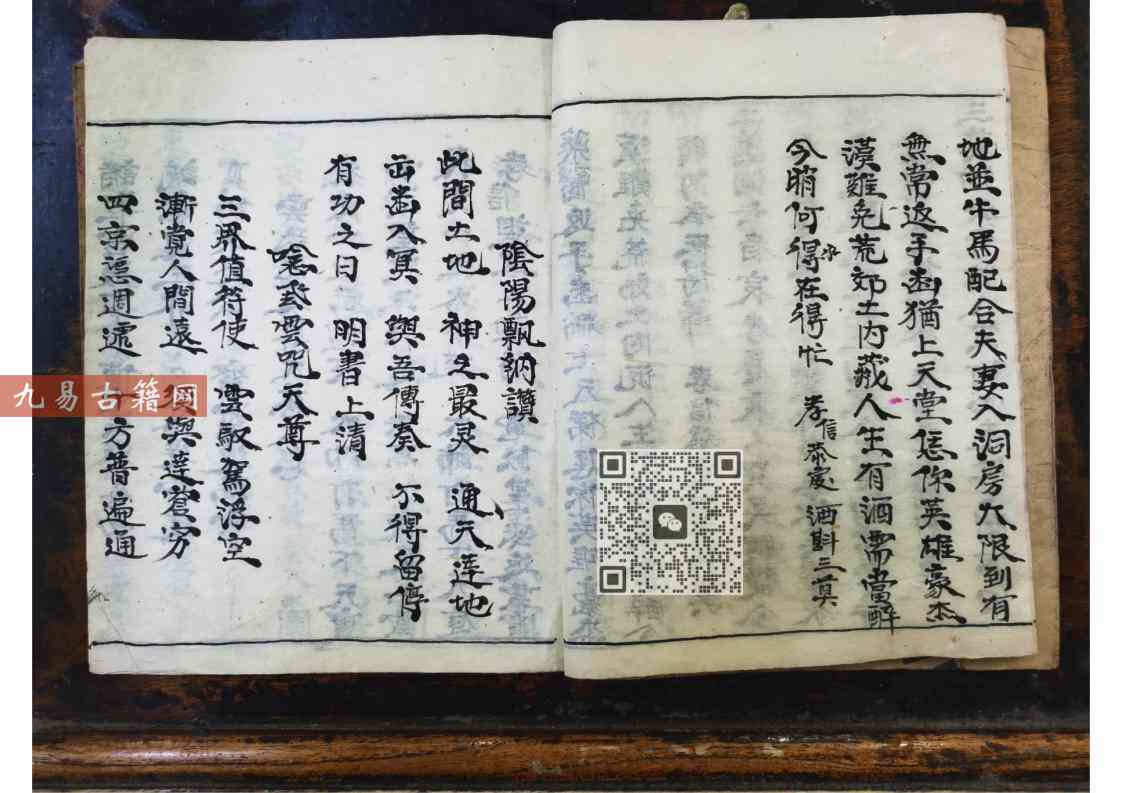 地並牛馬配合夫妻入洞房大限到有
無常返手凾猶上天堂恁你英雄豪杰
漢難免荒郊土内藏人生有酒需當醉
今朝何得在得忙 孝信恭處 酒斟三奠
陰陽飄納讚
此間土地 神之最灵 通天達地
出凾入冥 與吾傳奏 不得留停
有功之日 明書上清
念登雲咒天尊
三界值符使 雲馭駕浮空
漸覚人間遠 須與達蒼穷
四京 週遞 十方普遍通
九易古籍网